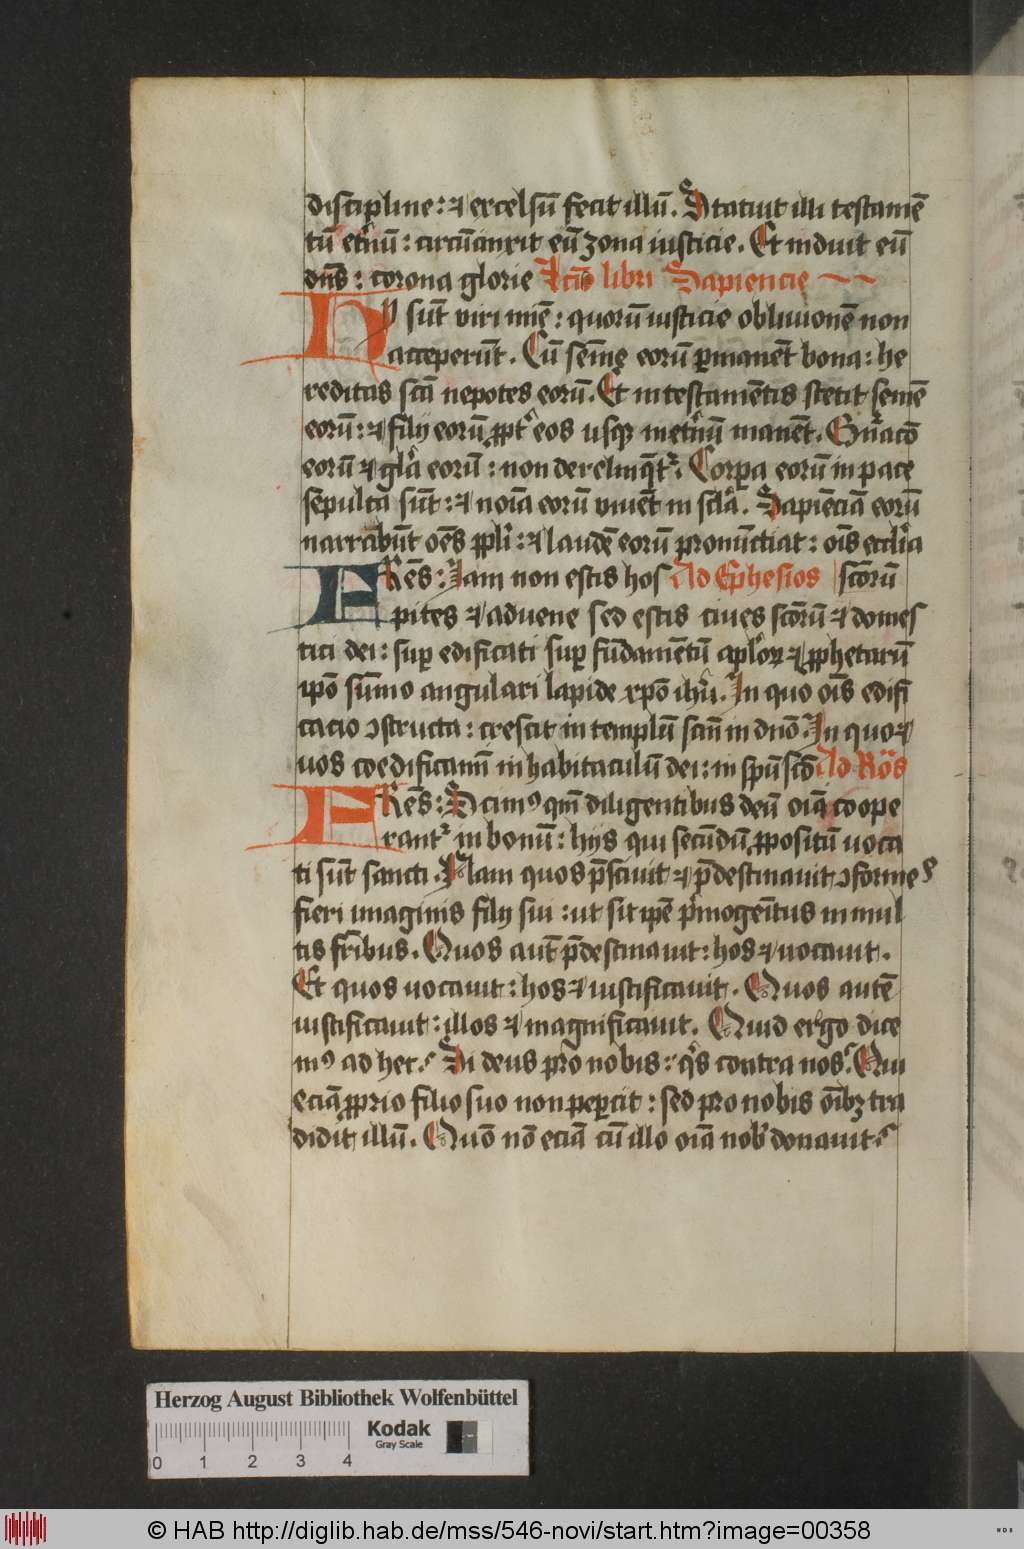 discipline: ⁊ excelsū fecit illū. Statuit illi testamē
tū et̾nū: circūcinxit eū zona iusticie. Et induit eū
dn̄s: corona glorie Ltīo libri Sapiencie
Hij sūt viri mīe: quorū iusticie obliuionē non
acceperūt. Cū semīe eorū ꝑmanēt bona: he
reditas scā nepotes eorū. Et in testamētis stetit semē
eorū: ⁊ filij eorū ꝓpt̾ eos usqꝫ in et̾nū manēt. Gn̾acō
eorū ⁊ gl̾a eorū: non derelinq̄t̾. Corꝑa eorū in pace
sepulta sūt: ⁊ noīa eorū viuēt in scl̾a. Sapiēciā eorū
narrabūt oēs ppl̾i: ⁊ laudē eorū pronūctiat: oīs eccl̾ia
FRēs: Jam non estis hos Ad Ephesios sctorū
pites ⁊ aduene sed estis ciues sctorū ⁊ domes
tici dei: suꝑ edificati suꝑ fūdamētū apl̾oꝝ ⁊ ꝓphetarū
ipō sūmo angulari lapide xpō ih̾u. In quo oīs edifi
cacio ↄstructa: crescit in templū scm̄ in dn̄o. In quo ⁊
uos coedificamī in habitaculū dei: in spū scō Ad Rōs
FRēs: Scimꝰ qm̄ diligentibus deū oīa coope
rant̾ in bonū: hijs qui secūdū ꝓpositū uoca
ti sūt sancti. Nam quos p̄sciuit ⁊ p̄destinauit ↄformes
fieri imaginis filij sui: ut sit ipē p̾mogeītus in mul
tis fr̄ibus. Quos aut̄ p̄destinauit: hos ⁊ uocauit.
Et quos uocauit: hos ⁊ iustificauit. Quos autē
iustificauit: illos ⁊ magnificauit. Quid ergo dice
mꝰ ad hec? Si deus pro nobis: q̾s contra nos? Qui
eciā ꝓprio filio suo non peꝑcit: sed pro nobis oībꝫ tra
didit illū. Quō nō eciā cū illo oīa nob̾ donauit?
Herzog August Bibliothek Wolfenbüttel
Kodak
Gray Scale
0 1 2 3 4
© HAB http://diglib.hab.de/mss/546-novi/start.htm?image=00358